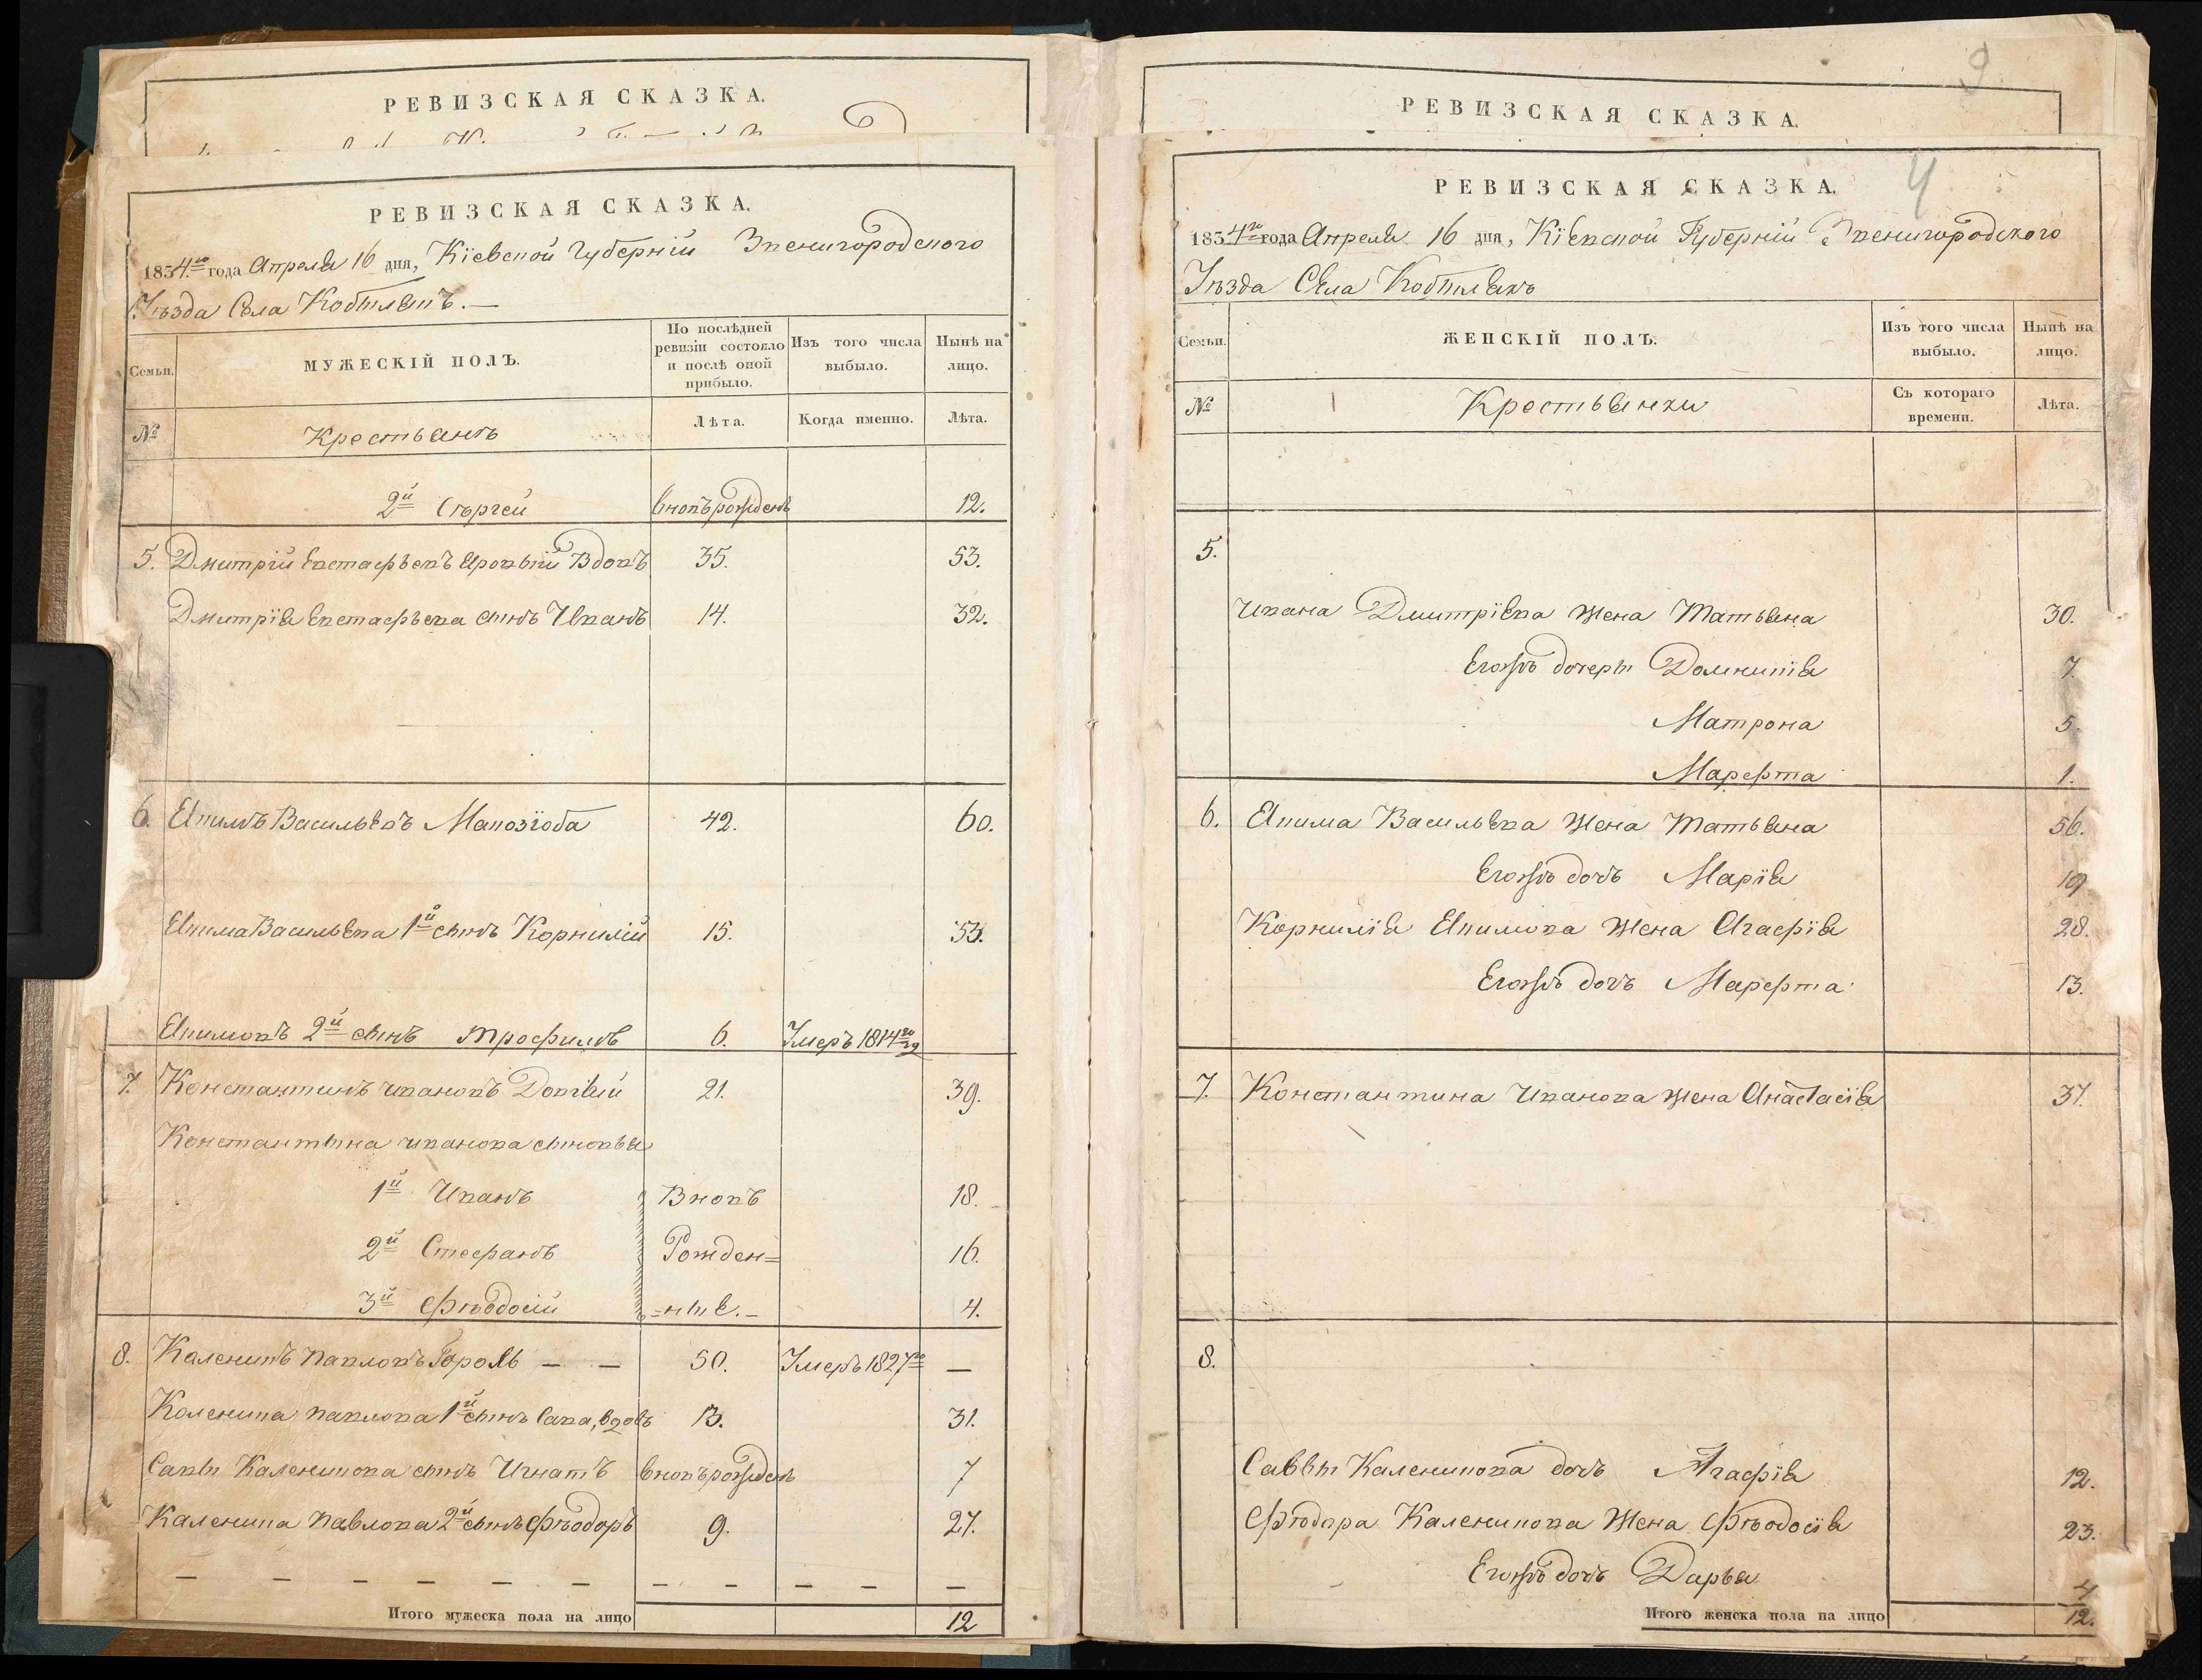 РЕВИЗСКАЯ СКАЗКА.
РЕВИЗСКАЯ СКАЗКА.
1834го года Апреля 16 дня, Кіевской Губерніи Звенигородского
Уѣзда Села Кобылякъ.—
Семьи.
МУЖЕСКІЙ ПОЛЪ.
По послѣдней ревизіи состояло и послѣ оной прибыло.
Изъ того числа выбыло.
Нынѣ на лицо.
№
Крестьянъ
Лѣта.
Когда именно.
Лѣта.
2й Сѣргей вновьрожденъ 12.
5. Дмитрій Евстафьевъ Яровый Вдовъ 35. 53.
Дмитрія Евстафьева сынъ Иванъ 14. 32.
6. Якимъ Васильевъ Макозюба 42. 60.
Якима Васильева 1й сынъ Корнилій 15. 33.
Якимовъ 2й сынъ Трофимъ 6. Умеръ 1814го
7. Константинъ Ивановъ Довгый 21. 39.
Константина Иванова сыновья
1й Иванъ Вновь 18.
2й Стефанъ Рожден= 16.
3й Фѣодосій =ные.— 4.
8. Каленикъ Павловъ Король — — 50. Умеръ 1827го —
Каленика Павлова 1й сынъ Сава, вдовъ 13. 31.
Савы Каленикова сынъ Игнатъ вновьрожденъ 7
Каленика Павлова 2й сынъ Фѣодоръ 9. 27.
Итого мужеска пола на лицо 12
9
РЕВИЗСКАЯ СКАЗКА.
4
РЕВИЗСКАЯ СКАЗКА.
1834го года Апреля 16 дня, Кіевской Губерніи Звенигородского
Уѣзда Села Кобылякъ
Семьи.
ЖЕНСКІЙ ПОЛЪ.
Изъ того числа выбыло.
Нынѣ на лицо.
№
Крестьянки
Съ котораго времени.
Лѣта.
5.
Ивана Дмитріева жена Татьяна 30.
Егожъ дочеры Домникія 7.
Матрона 5.
Марфта 1.
6. Якима Васильева жена Татьяна 56.
Егожъ дочь Марія 19
Корнилія Якимова жена Агафія 28.
Егожъ дочь Марфта 13.
7. Константина Иванова жена Анастасія 37.
8.
Саввы Каленикова дочь Агафія 12.
Фѣодора Каленикова жена Фѣодосія 23.
Егожъ дочь Дарья 4
Итого женска пола на лицо 12.